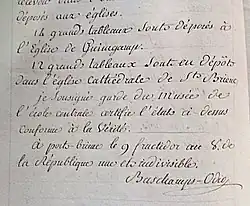 déposés aux églises.
14 grands tableaux sont déposés à
l'Église de Guingamp.
12 grands tableaux sont en dépots
dans l'église Cathédrale de St Brieuc
je soussigné garde du Musée de
l'école centrale certifie l'états ci dessus
conforme à la Vérité.
A port-brieuc le 9 fructidor an V de
la République une et indivisible.